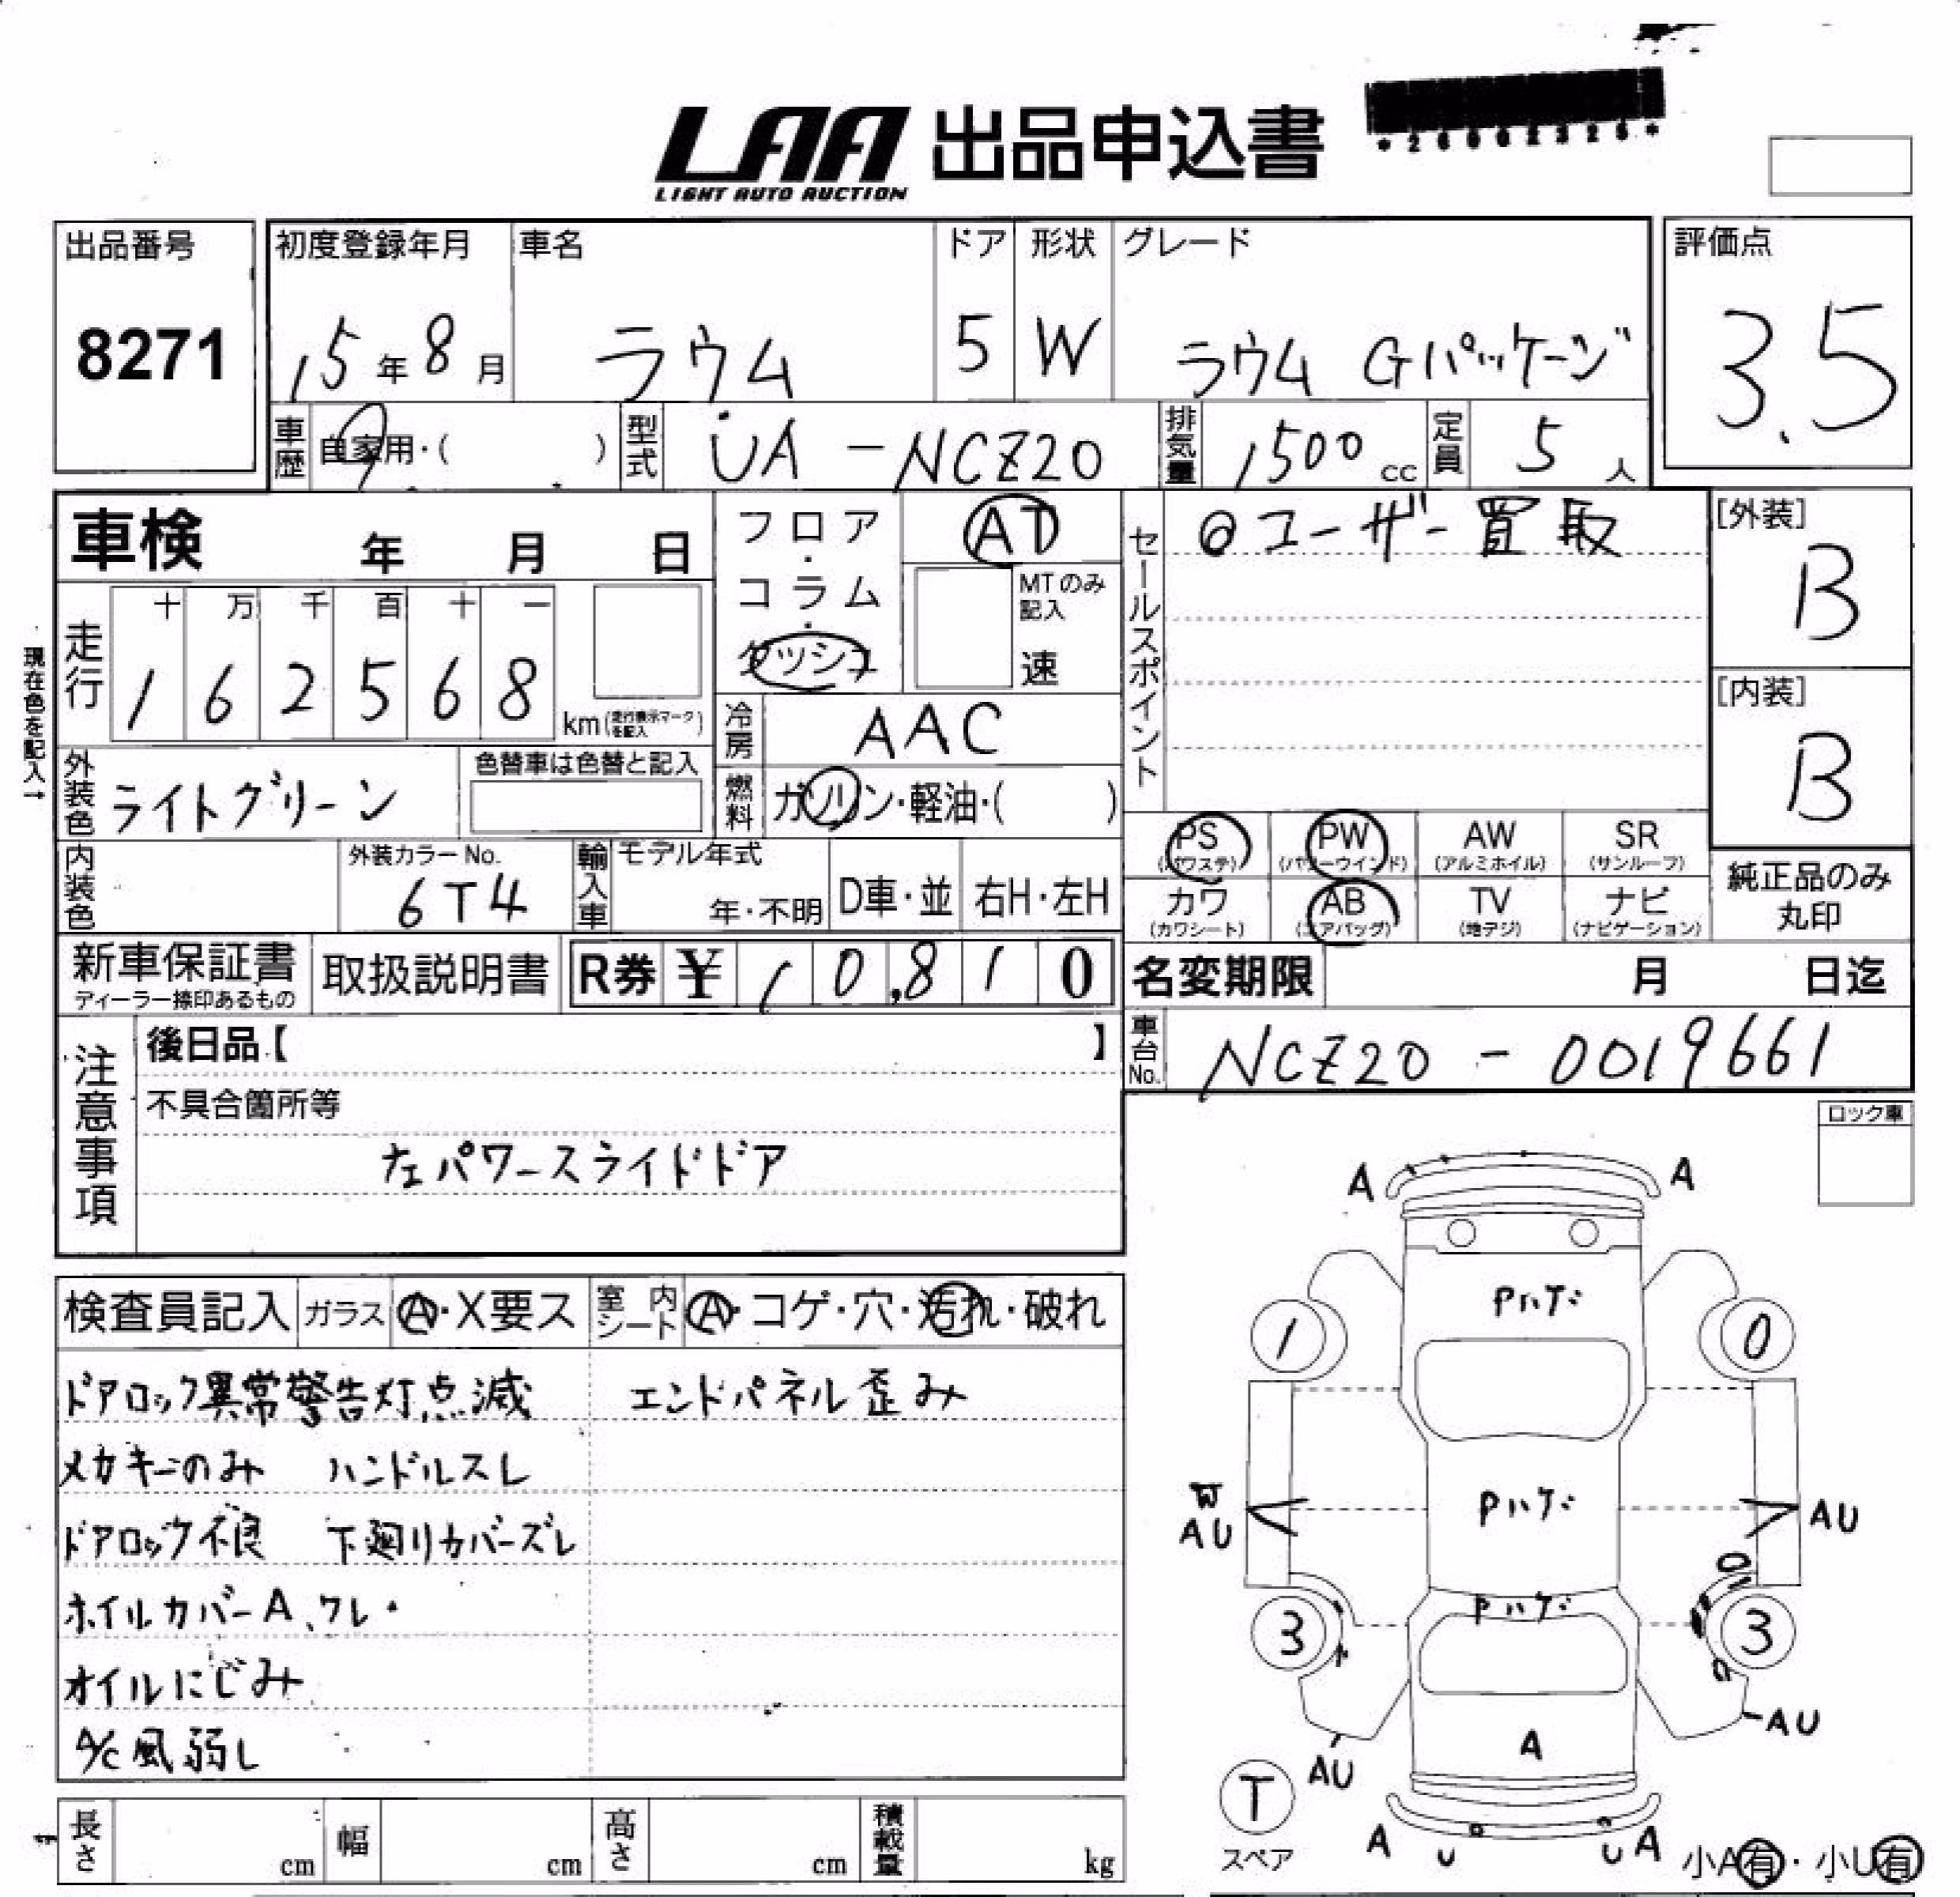 LAA 出品申込書
LIGHT AUTO AUCTION
出品番号
8271
初度登録年月
15年8月
車名
ラウム
ドア
5
形状
W
グレード
ラウム Gパッケージ
評価点
3.5
車歴
自家用・( )
型式
UA-NCZ20
排気量
1500cc
定員
5人
車検 年 月 日
フロア・コラム・ダッシュ
AT
MTのみ記入
速
セールスポイント
◎ユーザー買取
[外装]
B
[内装]
B
現在色を記入→
走行
十 万 千 百 十 一
1 6 2 5 6 8
km(走行表示マークを記入)
冷房
AAC
外装色
ライトグリーン
色替車は色替と記入
燃料
ガソリン・軽油・( )
PS (パワステ)
PW (パワーウインド)
AW (アルミホイル)
SR (サンルーフ)
内装色
外装カラーNo.
6T4
輸入車
モデル年式
年・不明
D車・並
右H・左H
カワ (カワシート)
AB (エアバッグ)
TV (地デジ)
ナビ (ナビゲーション)
純正品のみ
丸印
新車保証書
ディーラー捺印あるもの
取扱説明書
R券 ¥ 10,810
名変期限 月 日迄
車台No.
NCZ20 - 0019661
注意事項
後日品【 】
不具合箇所等
左パワースライドドア
ロック車
検査員記入
ガラス
A・X要ス
室内シート
A・コゲ・穴・汚れ・破れ
ドアロック異常警告灯点滅 エンドパネル歪み
メカキーのみ ハンドルスレ
ドアロック不良 下廻りカバーズレ
ホイルカバーA、ワレ
オイルにじみ
A/C風弱し
A A
Pハゲ
1 0
Pハゲ
W
AU AU
Pハゲ
3 3
AU
A
AU
T
スペア
A U U A
小A有・小U有
長さ cm
幅 cm
高さ cm
積載量 kg